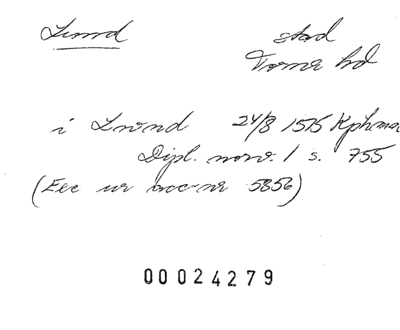 Lund stad
Torna hd
i Lwnd 24/8 1515 Kphmn
Dipl. norv. 1 s. 755
(Exc ur acc-nr 5856)
00024279